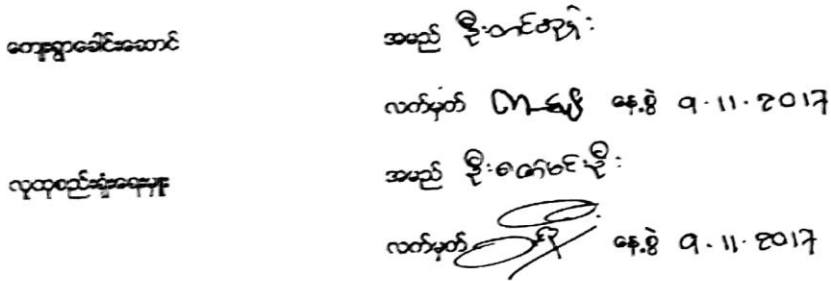 ကျေးရွာခေါင်းဆောင် အမည် ဦးတင်ထွန်း
လက်မှတ် နေ့စွဲ 9.11.2017
လူထုစည်းရုံးရေးမှူး အမည် ဦးဇော်မင်းဦး
လက်မှတ် နေ့စွဲ 9.11.2017